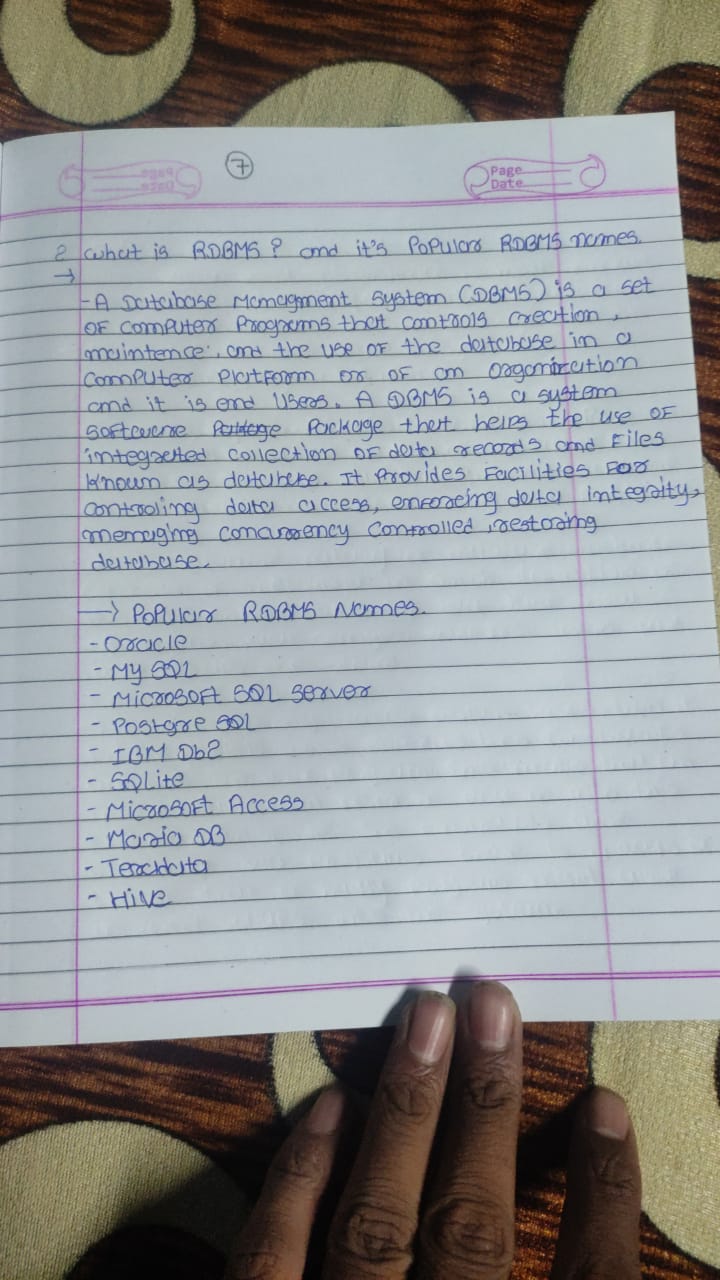 7
Page
Date
2 what is RDBMS ? and it's Popular RDBMS names.
→
- A Database Managment System (DBMS) is a set
OF Computer Programs that controls creation,
maintence, and the use OF the database in a
Computer Platform or OF an organization
and it is end Users. A DBMS is a system
Software Package that helps the use OF
integrated collection OF data records and Files
known as database. It Provides Facilities For
controling data access, enforcing data integrity,
menaging concurrency controlled, restoring
database.
→ Popular RDBMS Names.
- Oracle
- My SQL
- Microsoft SQL Server
- Postgre SQL
- IBM Db2
- SQLite
- Microsoft Access
- Maria DB
- Teradata
- Hive